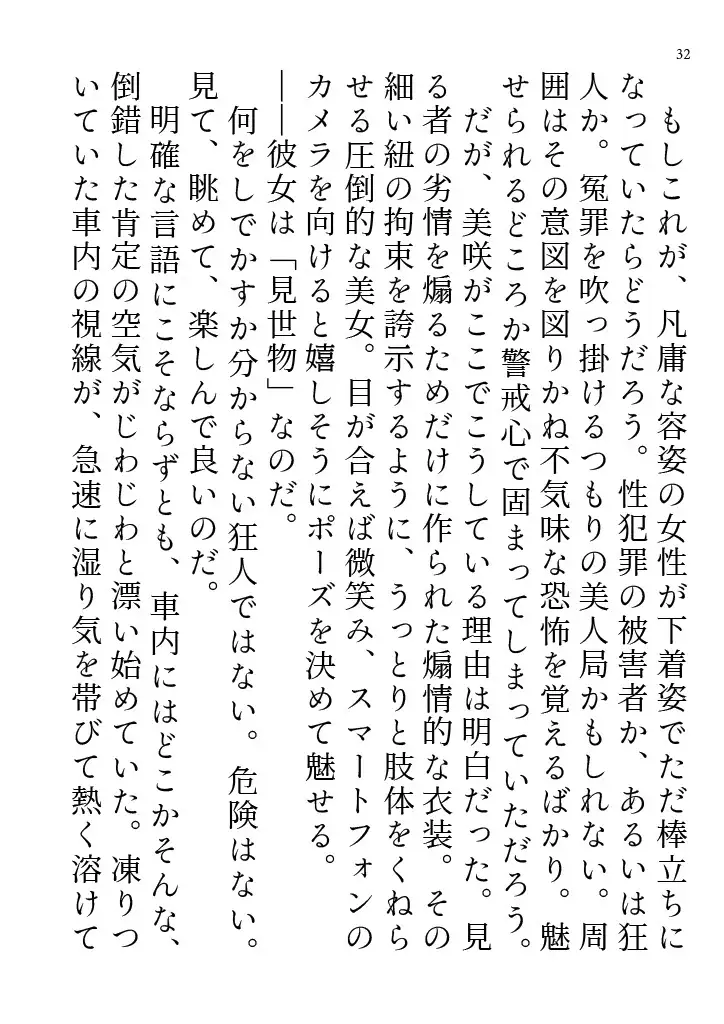 32
もしこれが、凡庸な容姿の女性が下着姿でただ棒立ちに
なっていたらどうだろう。性犯罪の被害者か、あるいは狂
人か。冤罪を吹っ掛けるつもりの美人局かもしれない。周
囲はその意図を図りかね不気味な恐怖を覚えるばかり。魅
せられるどころか警戒心で固まってしまっていただろう。
だが、美咲がここでこうしている理由は明白だった。見
る者の劣情を煽るためだけに作られた煽情的な衣装。その
細い紐の拘束を誇示するように、うっとりと肢体をくねら
せる圧倒的な美女。目が合えば微笑み、スマートフォンの
カメラを向けると嬉しそうにポーズを決めて魅せる。
――彼女は「見世物」なのだ。
何をしでかすか分からない狂人ではない。危険はない。
見て、眺めて、楽しんで良いのだ。
明確な言語にこそならずとも、車内にはどこかそんな、
倒錯した肯定の空気がじわじわと漂い始めていた。凍りつ
いていた車内の視線が、急速に湿り気を帯びて熱く溶けて